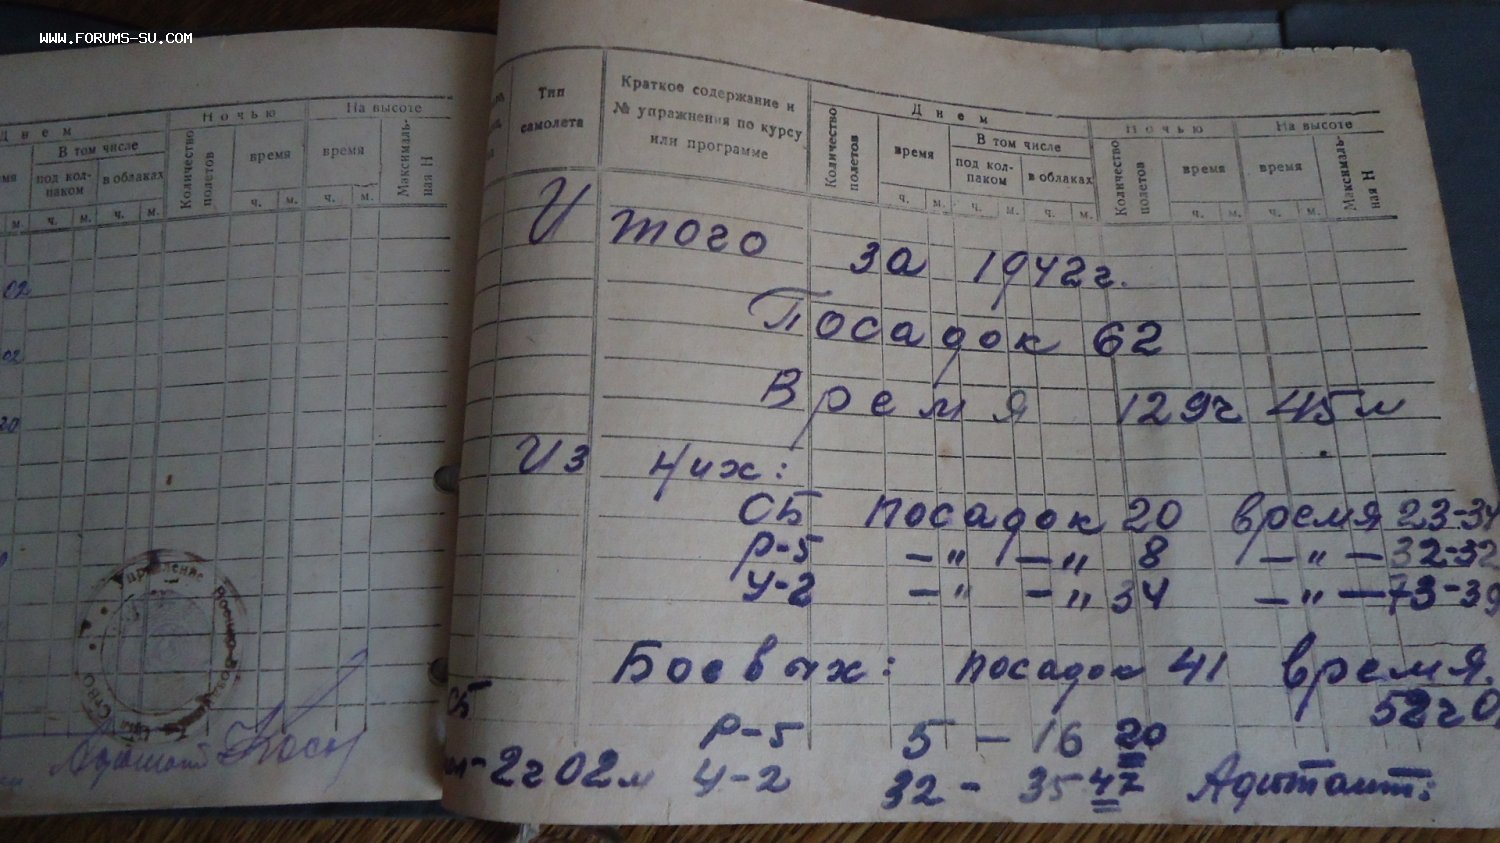 WWW.FORUMS-SU.COM
Днем
Ночью
На высоте
В том числе
Количество полетов
время
время
Максималь-
ная Н
под кол-
паком
в облаках
м.
ч.
м.
ч.
м.
ч.
м.
ч.
м.
02
02
20
Управление Военно-Возду
Адъютант
Тип
самолета
Краткое содержание и
№ упражнения по курсу
или программе
Днем
Ночью
На высоте
Количество
полетов
время
В том числе
под кол-
паком
в облаках
Количество
полетов
время
время
Максималь-
ная Н
ч.
м.
ч.
м.
ч.
м.
ч.
м.
ч.
м.
Итого за 1942г.
Посадок 62
Время 129ч 45м
Из них:
СБ посадок 20 время 23-34
Р-5 —"—" 8 —"— 32-32
У-2 —"—" 34 —"— 73-39
Боевых: посадок 41 время
52ч0
СБ
Р-5 5 — 16 20
2ч02м У-2 32 — 35 47 Адьтант: